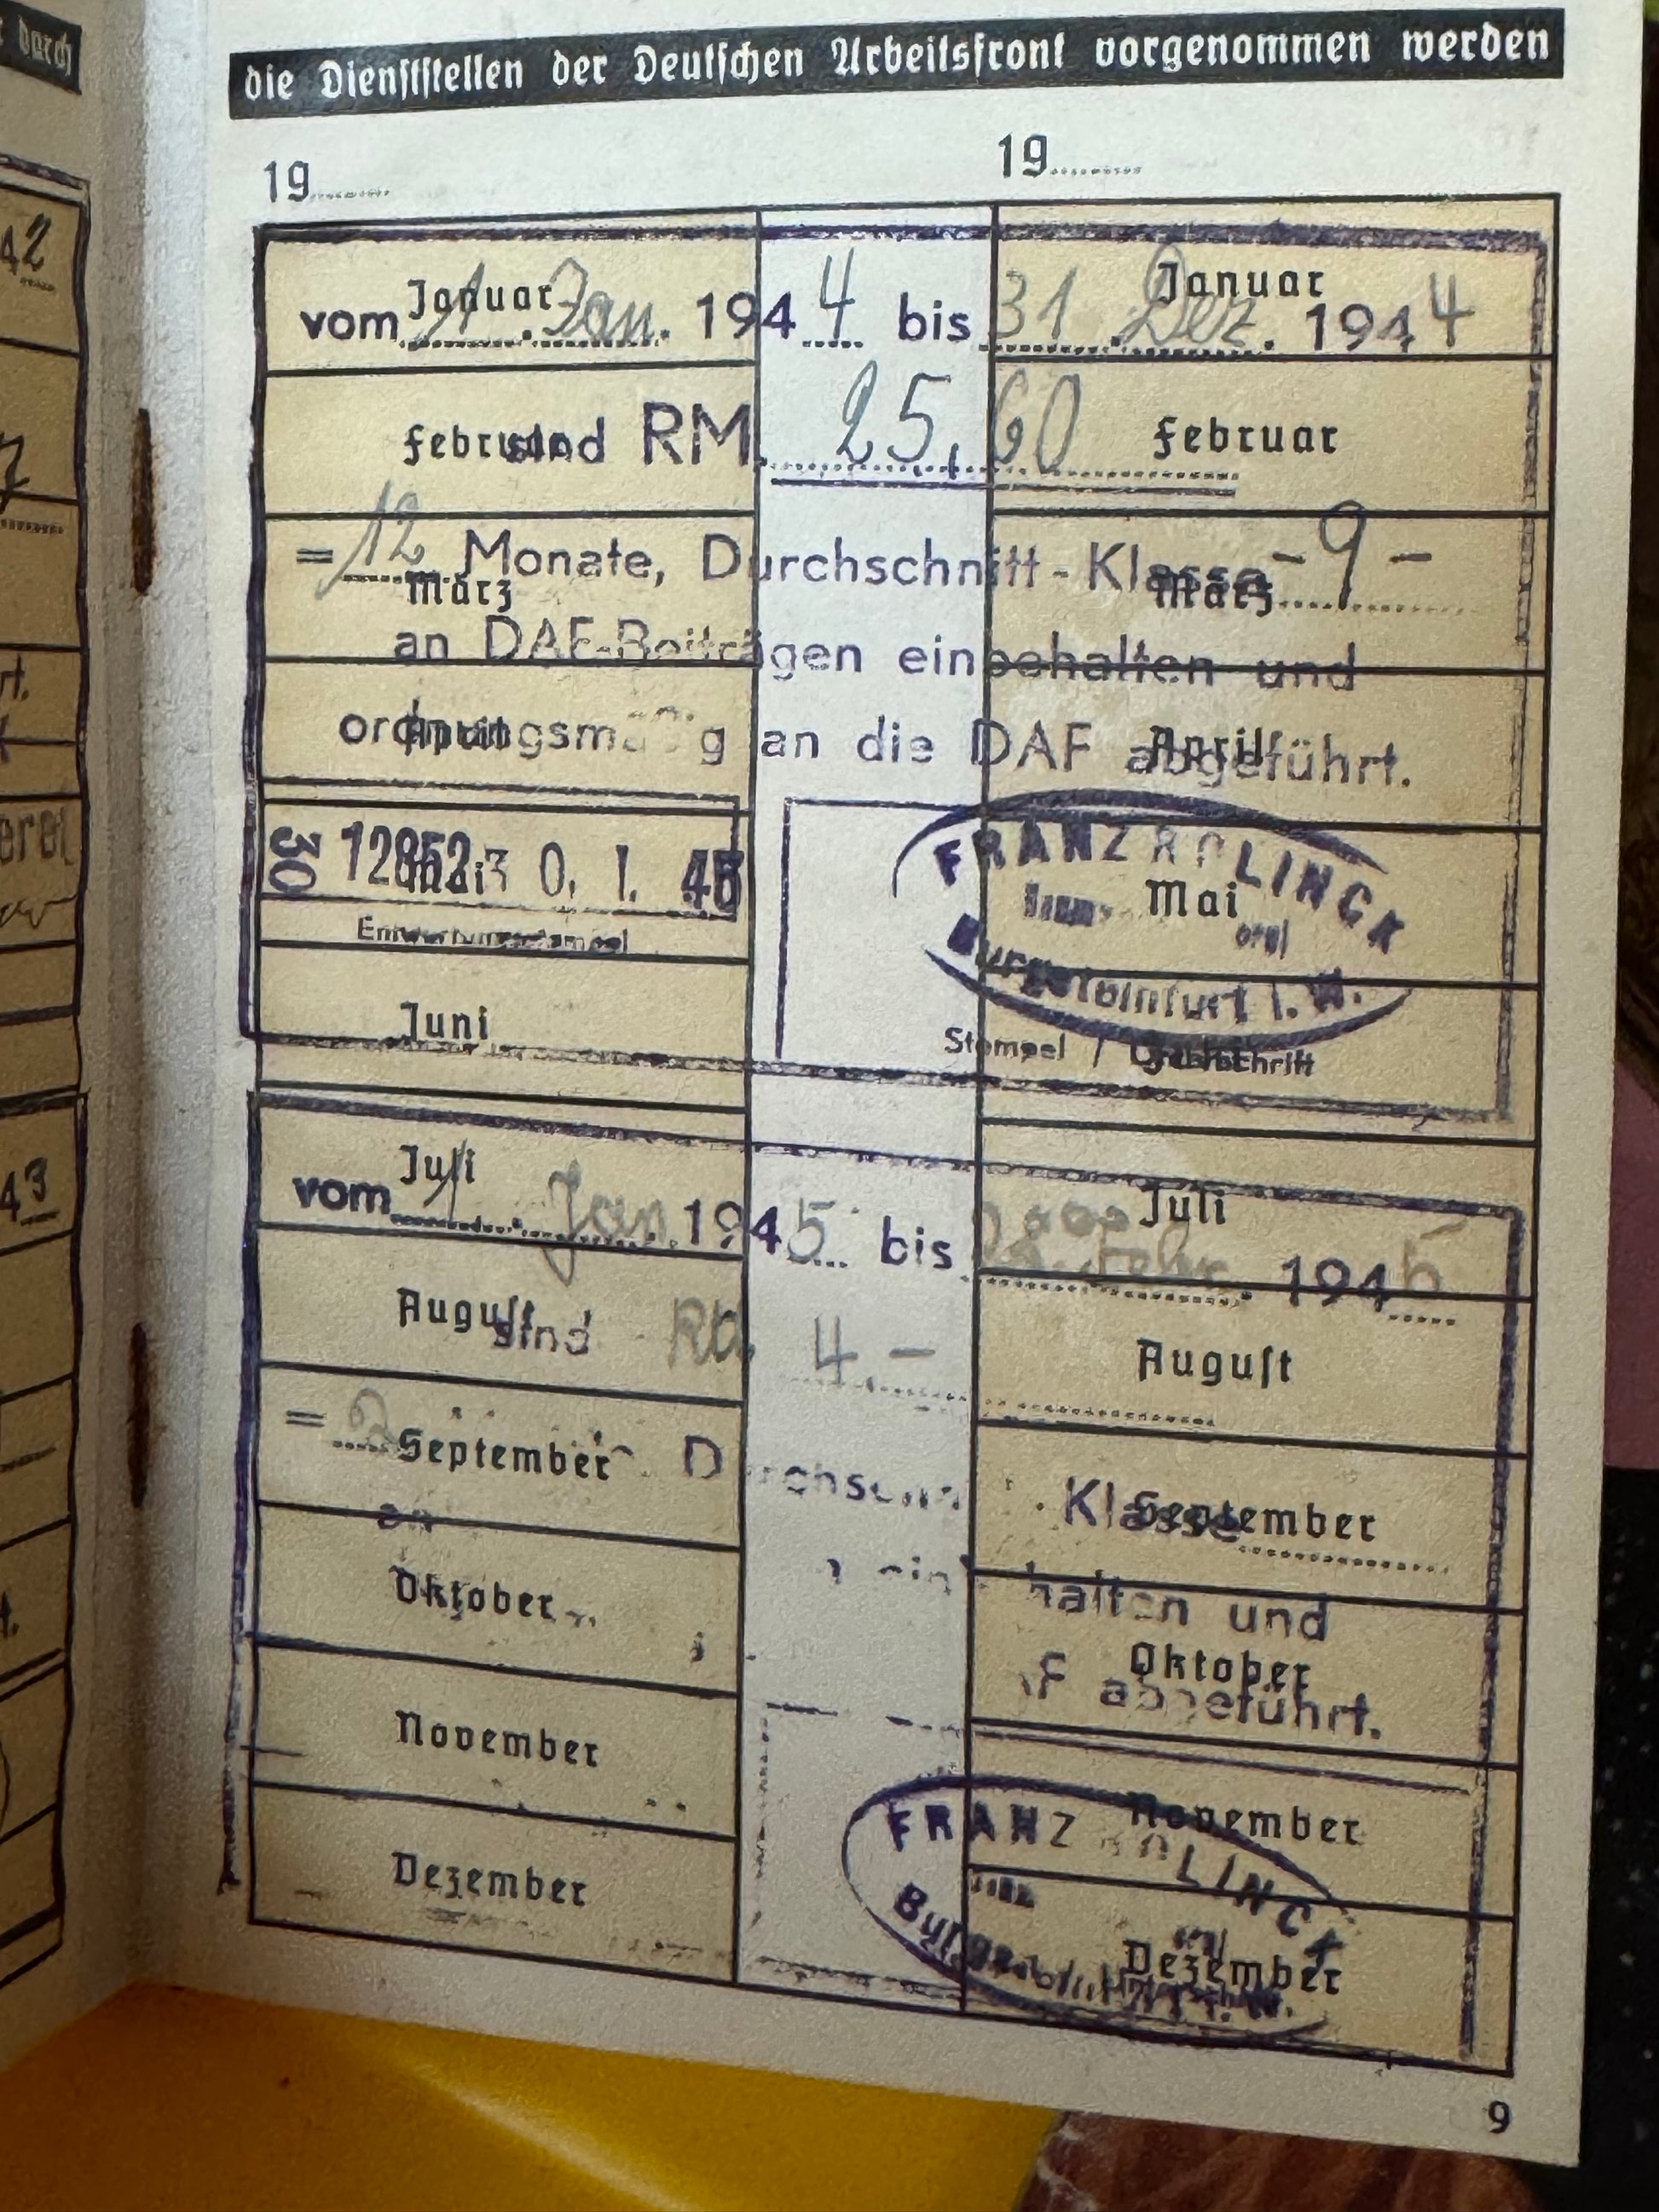 durch
die Dienststellen der Deutschen Arbeitsfront vorgenommen werden
19
19
42
Januar
Januar
vom 1. Jan. 1944 bis 31. Dez. 1944
Februar
Februar
sind RM. 25,60
= 12 Monate, Durchschnitt-Klasse -9-
März
März
an DAF-Beiträgen einbehalten und
April
April
ordnungsmäßig an die DAF abgeführt.
30
Mai
FRANZ ROLINCK
Mai
Burgsteinfurt i. W.
Entwertungsstempel
Juni
Juni
Stempel / Unterschrift
43
Juli
Juli
vom 1. Jan. 1945 bis 1945
August
August
sind 4 -
= September
September
Klasse
an
halten und
Oktober
Oktober
abgeführt.
November
November
FRANZ ROLINCK
Dezember
Dezember
Burgsteinfurt i. W.
9